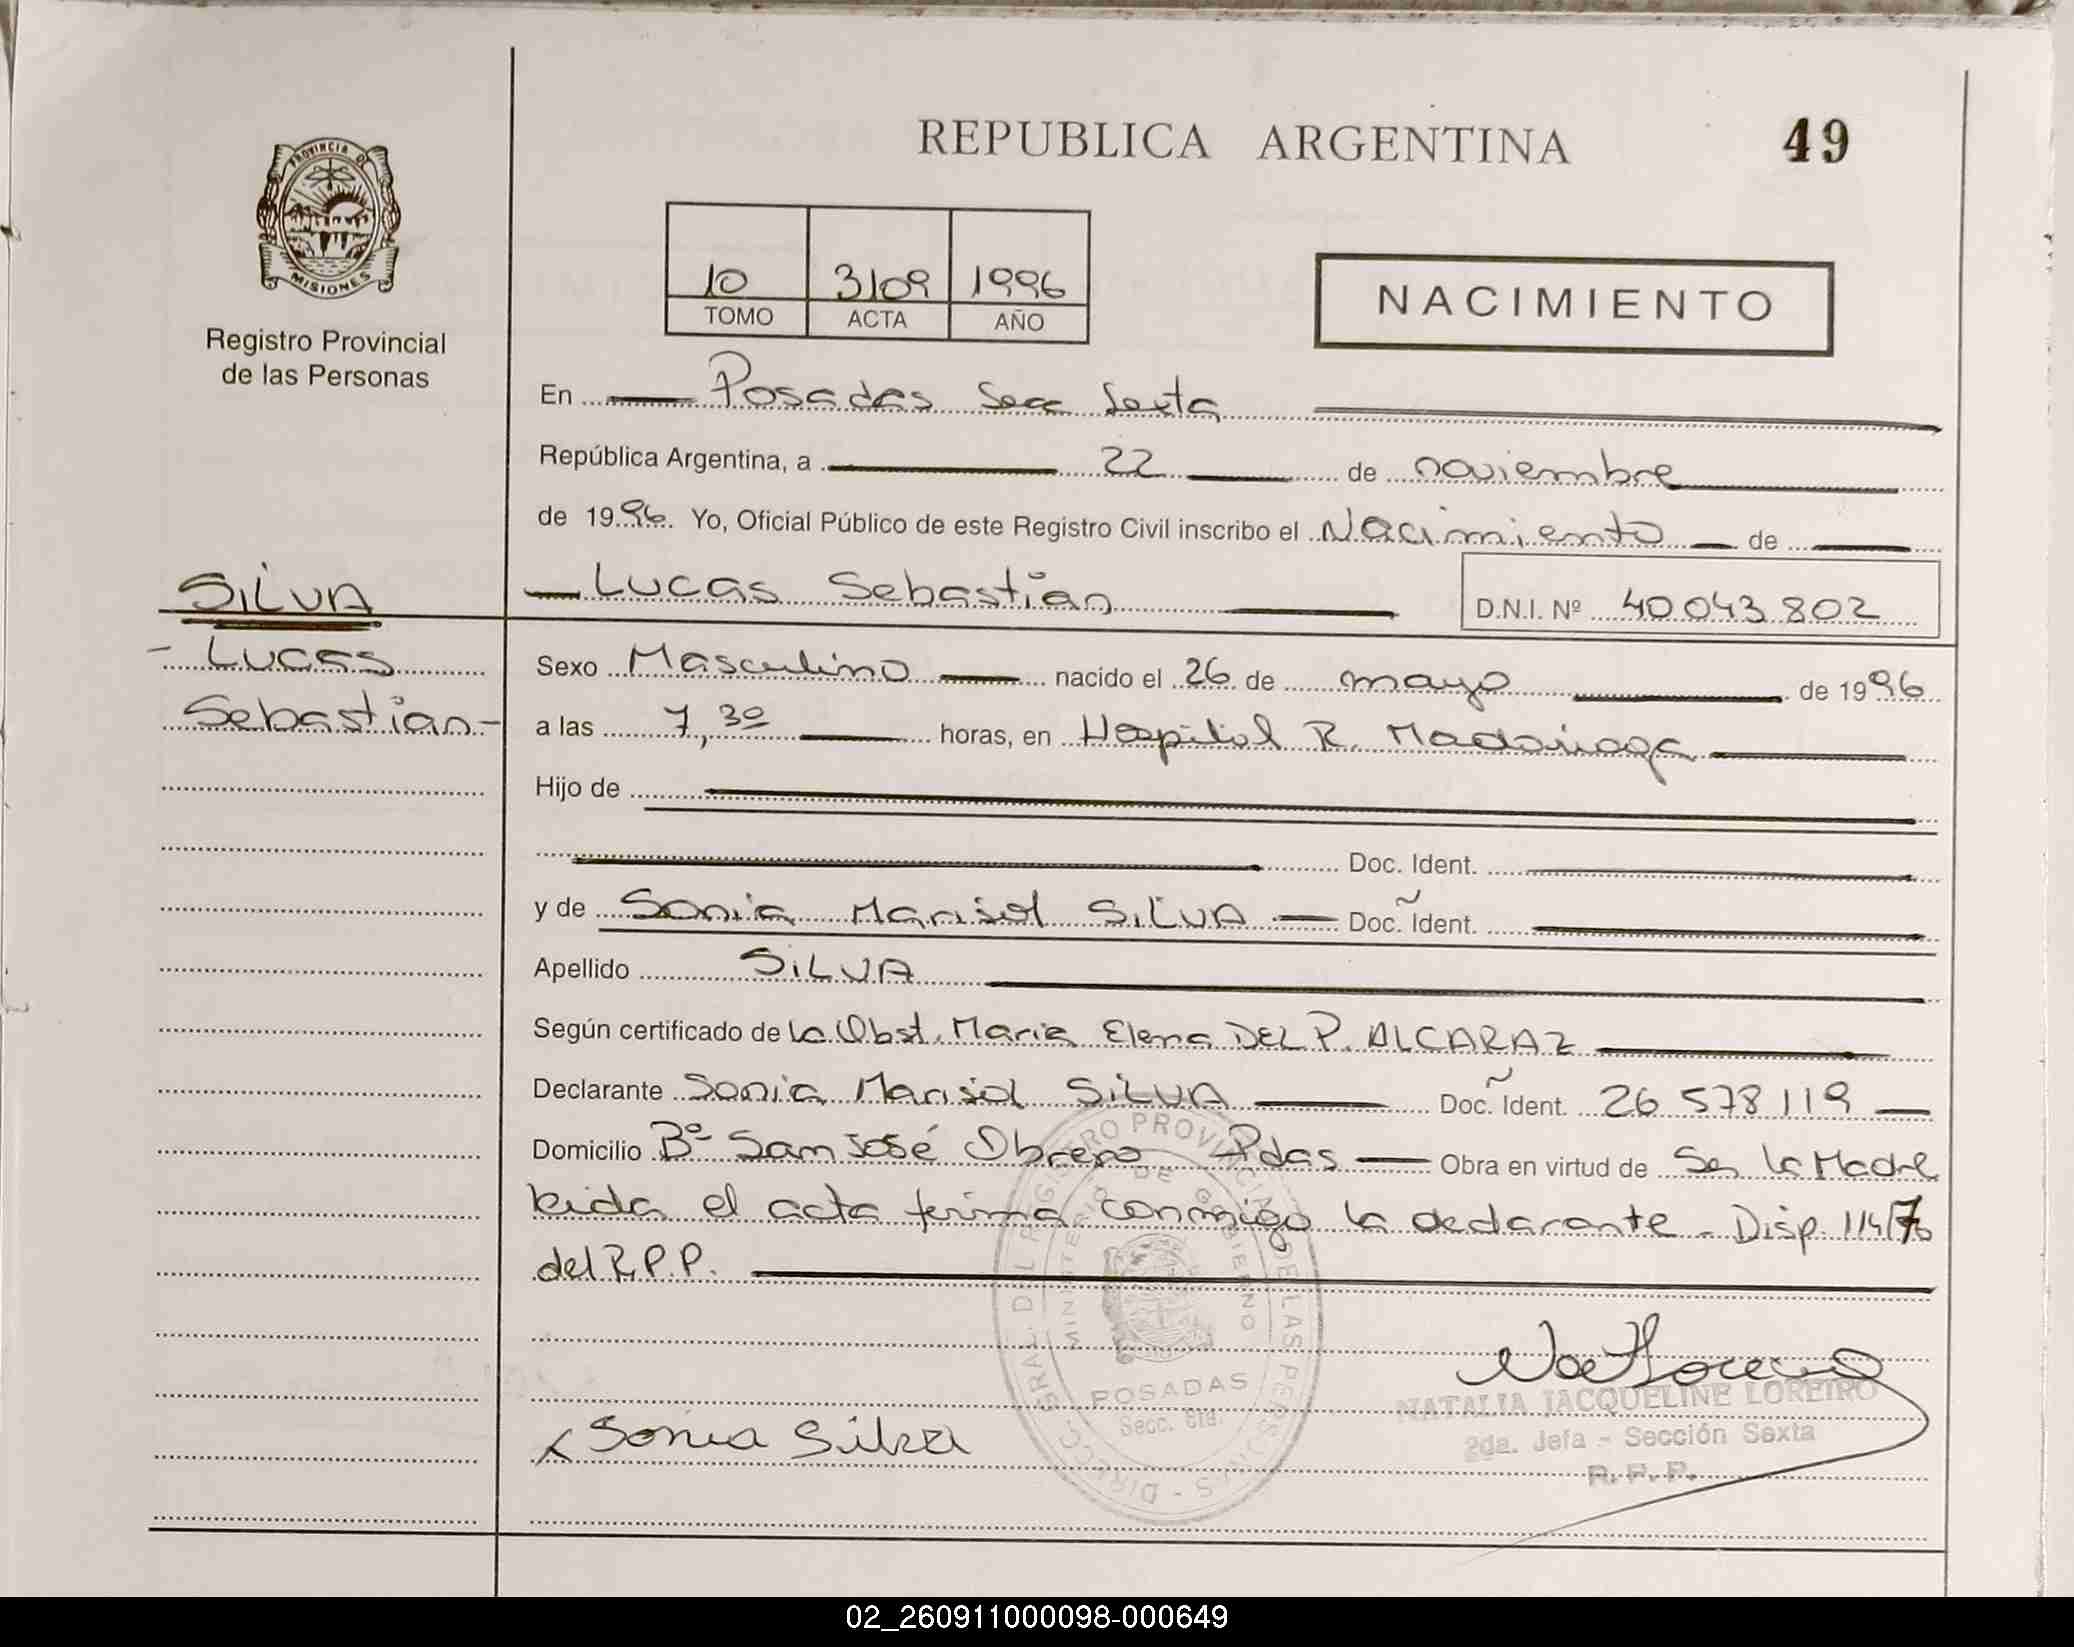 REPUBLICA ARGENTINA
49
PROVINCIA DE
MISIONES
Registro Provincial
de las Personas
10 3109 1996
TOMO ACTA AÑO
NACIMIENTO
En Posadas Secc Sexta
República Argentina, a 22 de noviembre
de 1996. Yo, Oficial Público de este Registro Civil inscribo el Nacimiento de
SILVA
Lucas Sebastian
D.N.I. Nº 40 043 802
- Lucas
Sebastian -
Sexo Masculino nacido el 26 de mayo de 1996
a las 7,30 horas, en Hospital R. Madariaga
Hijo de
Doc. Ident.
y de Sonia Marisol SILVA Doc. Ident.
Apellido SILVA
Según certificado de la Obst. Maria Elena DEL P. ALCARAZ
Declarante Sonia Marisol SILVA Doc. Ident. 26 578 119
Domicilio Bº San José Obrero Pdas Obra en virtud de Ser la Madre
Leida el acta firma conmigo la declarante - Disp. 114/76
del R.P.P.
DIRECC. GRAL. DEL REGISTRO PROVINCIAL DE LAS PERSONAS -
MINISTERIO DE GOBIERNO
POSADAS
Secc. 6ta.
NATALIA JACQUELINE LOREIRO
2da. Jefa - Sección Sexta
R. P. P.
x Sonia Silva
02_260911000098-000649